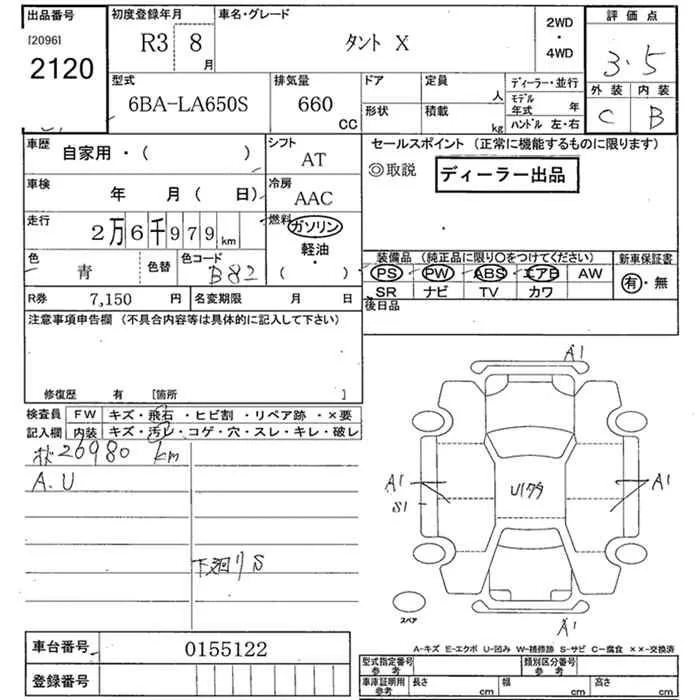 出品番号 初度登録年月 車名・グレード 2WD・4WD 評価点
[2096] R3 8月 タント X 3.5
2120
型式 排気量 ドア 定員 人 ディーラー・並行 外装 内装
6BA-LA650S 660 CC 形状 積載 kg モデル年式 年 C B
ハンドル 左・右
車歴 自家用・( ) シフト AT セールスポイント (正常に機能するものに限ります)
◎取説 ディーラー出品
車検 年 月 ( 日) 冷房 AAC
走行 2万6千979km 燃料 ガソリン
軽油・
( )
色 青 色替 色コード B82
装備品 (純正品に限り〇をつけてください) 新車保証書
PS PW ABS エアB AW 有・無
SR ナビ TV カワ
R券 7,150 円 名変期限 月 日 後日品
注意事項申告欄 (不具合内容等は具体的に記入して下さい)
修復歴 有 [箇所 ]
検査員 FW キズ・飛石・ヒビ割・リペア跡・×要
記入欄 内装 キズ・汚レ・コゲ・穴・スレ・キレ・破レ
26980 km
A.U
下廻りS
A1
A1
S1
A1
A1
スペア
A-キズ E-エクボ U-凹み W-補修跡 S-サビ C-腐食 ××-交換済
車台番号 0155122
登録番号
型式指定番号 参考 類別区分番号 参考
車庫証明用 参考 長さ cm 幅 cm 高さ cm